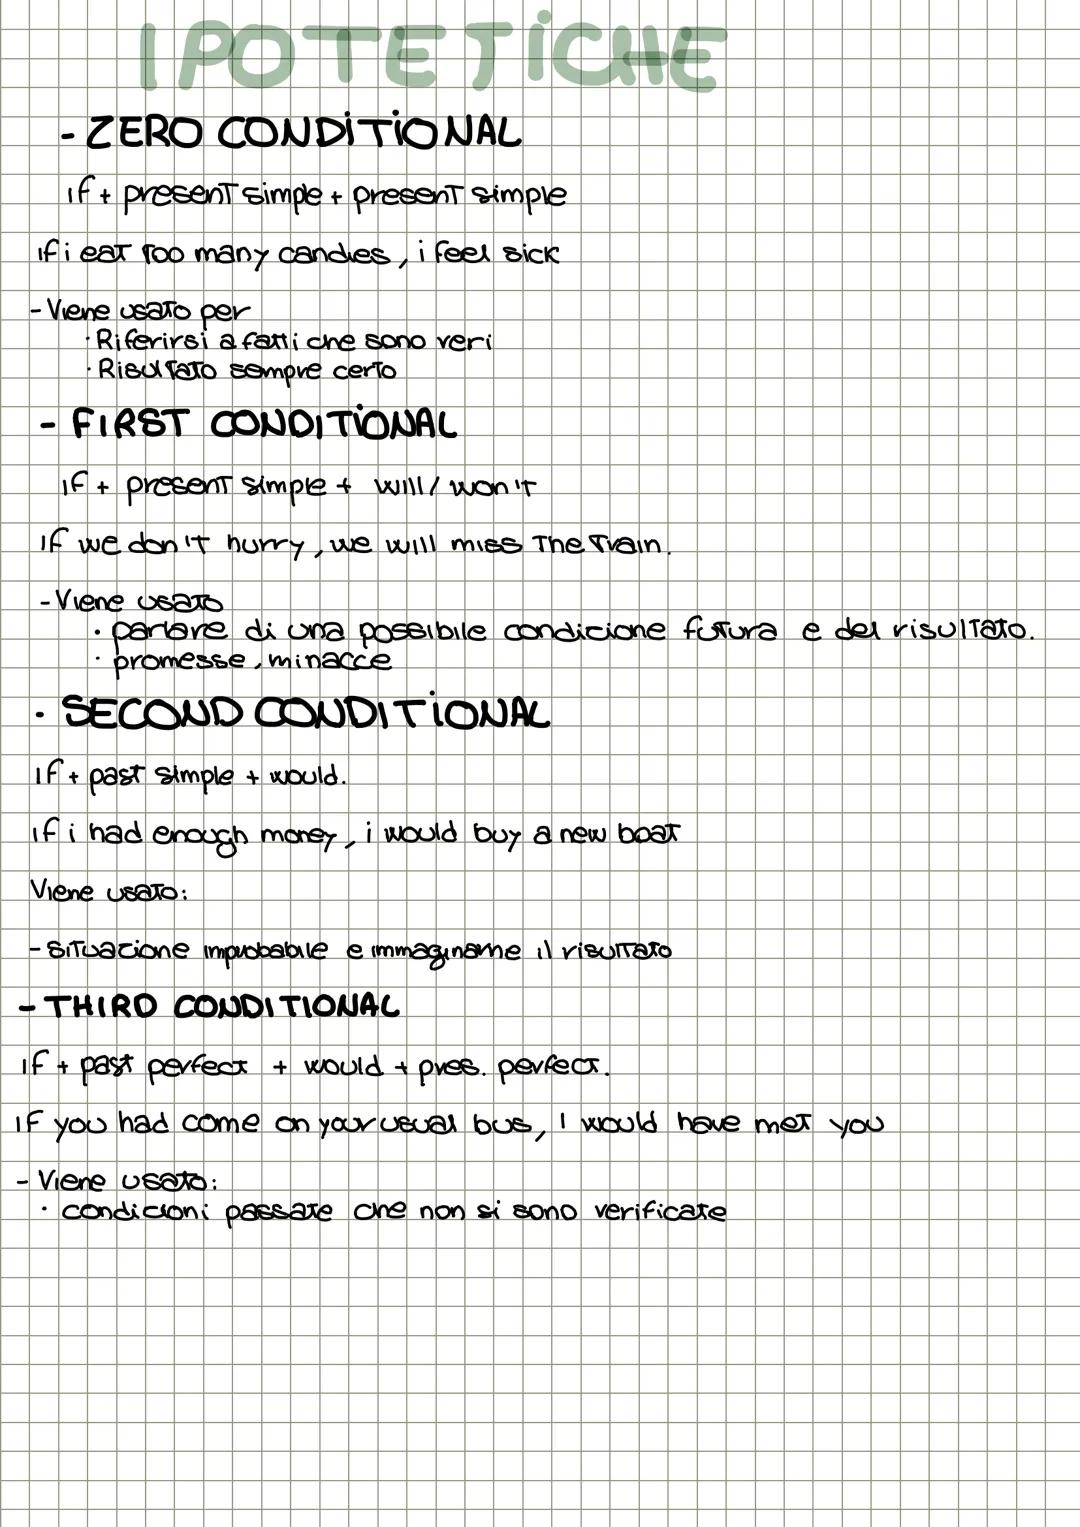 IPOTETICHE
- ZERO CONDITIONAL
if + present simple + present simple
if i eat too many candies, i feel sick
- Viene usato per
· Riferirsi a fatti che sono veri
· Risultato sempre certo
- FIRST CONDITIONAL
if + present simple + will / won't
if we don't hurry, we will miss the train.
- Viene usato
· parlare di una possibile condicione futura e del risultato.
· promesse, minacce
· SECOND CONDITIONAL
if + past simple + would.
if i had enough money, i would buy a new boat
Viene usato:
- situazione improbabile e immaginarne il risultato
- THIRD CONDITIONAL
if + past perfect + would + pres. perfect.
if you had come on your usual bus, I would have met you
- Viene usato:
· condicioni passate che non si sono verificate